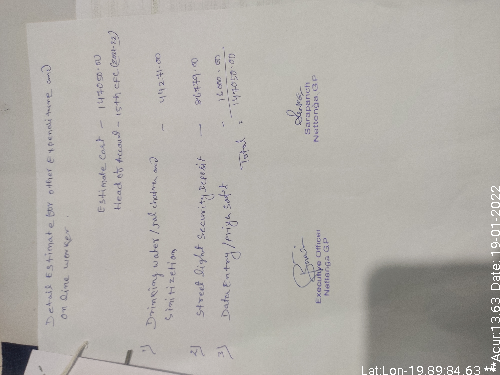 Detail Estimate for other Expenditure and
on line worker.
Estimate Cost - 147050.00
Head of Account - 15th CFC (2021-22)
1) Drinking water / and
Sinitization - 44271.00
2) Street light security Deposit - 86779.00
3) Data Entry / Priya Soft - 16000.00
Total = 147050.00
Executive Officer
Nettanga GP
Sarapanch
Nettanga GP
Lat:Lon-19.89:84.63
**Acur:13.63 Date:19-01-2022